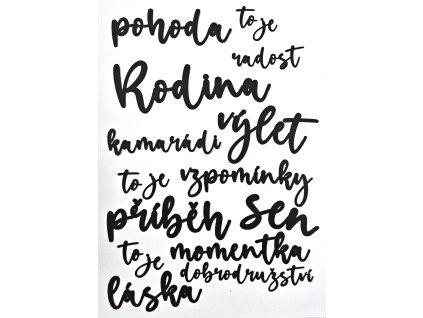 pohoda to je
radost
Rodina
výlet
kamarádi
to je vzpomínky
příběh sen
to je momentka
dobrodružství
láska